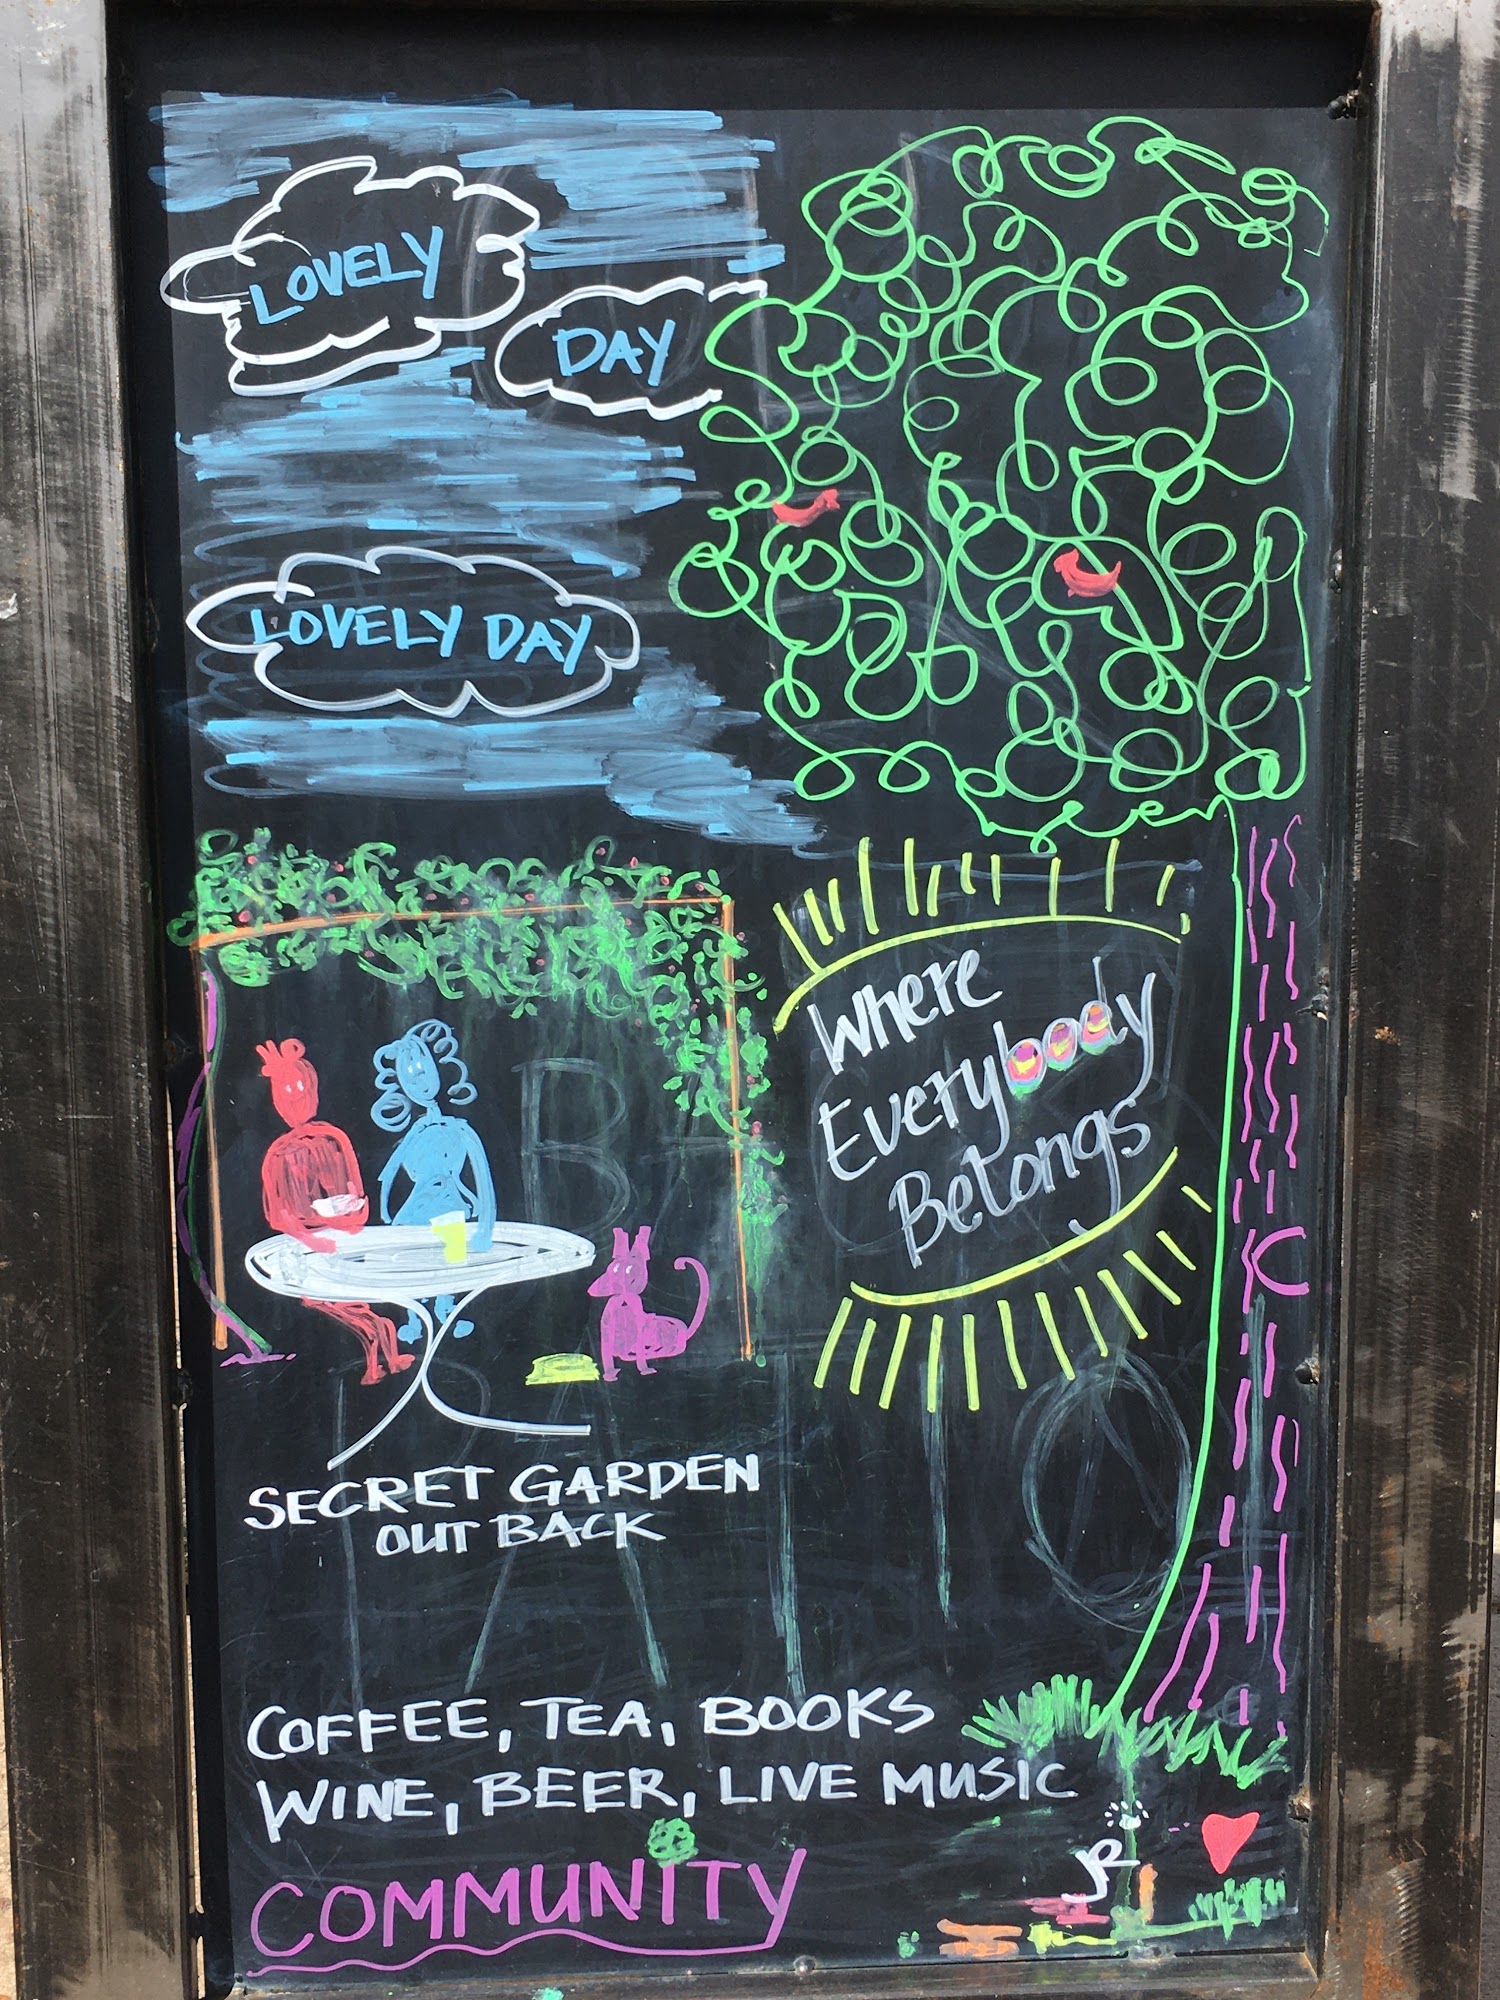 LOVELY
DAY
LOVELY DAY
Where
Everybody
Belongs
SECRET GARDEN
OUT BACK
COFFEE, TEA, BOOKS
WINE, BEER, LIVE MUSIC
COMMUNITY
JR